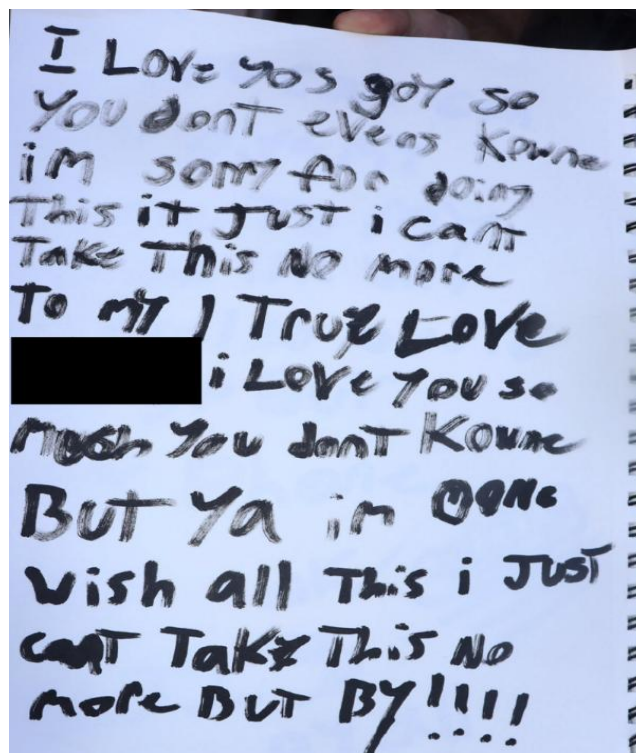 I Love yos goy so
You dont evens Kowne
im sorry for doing
This it Just i cant
Take This No more
To my 1 True Love
i Love You so
much You dont Kowne
But Ya im
wish all This i JUST
cant Take This No
more But BY!!!!